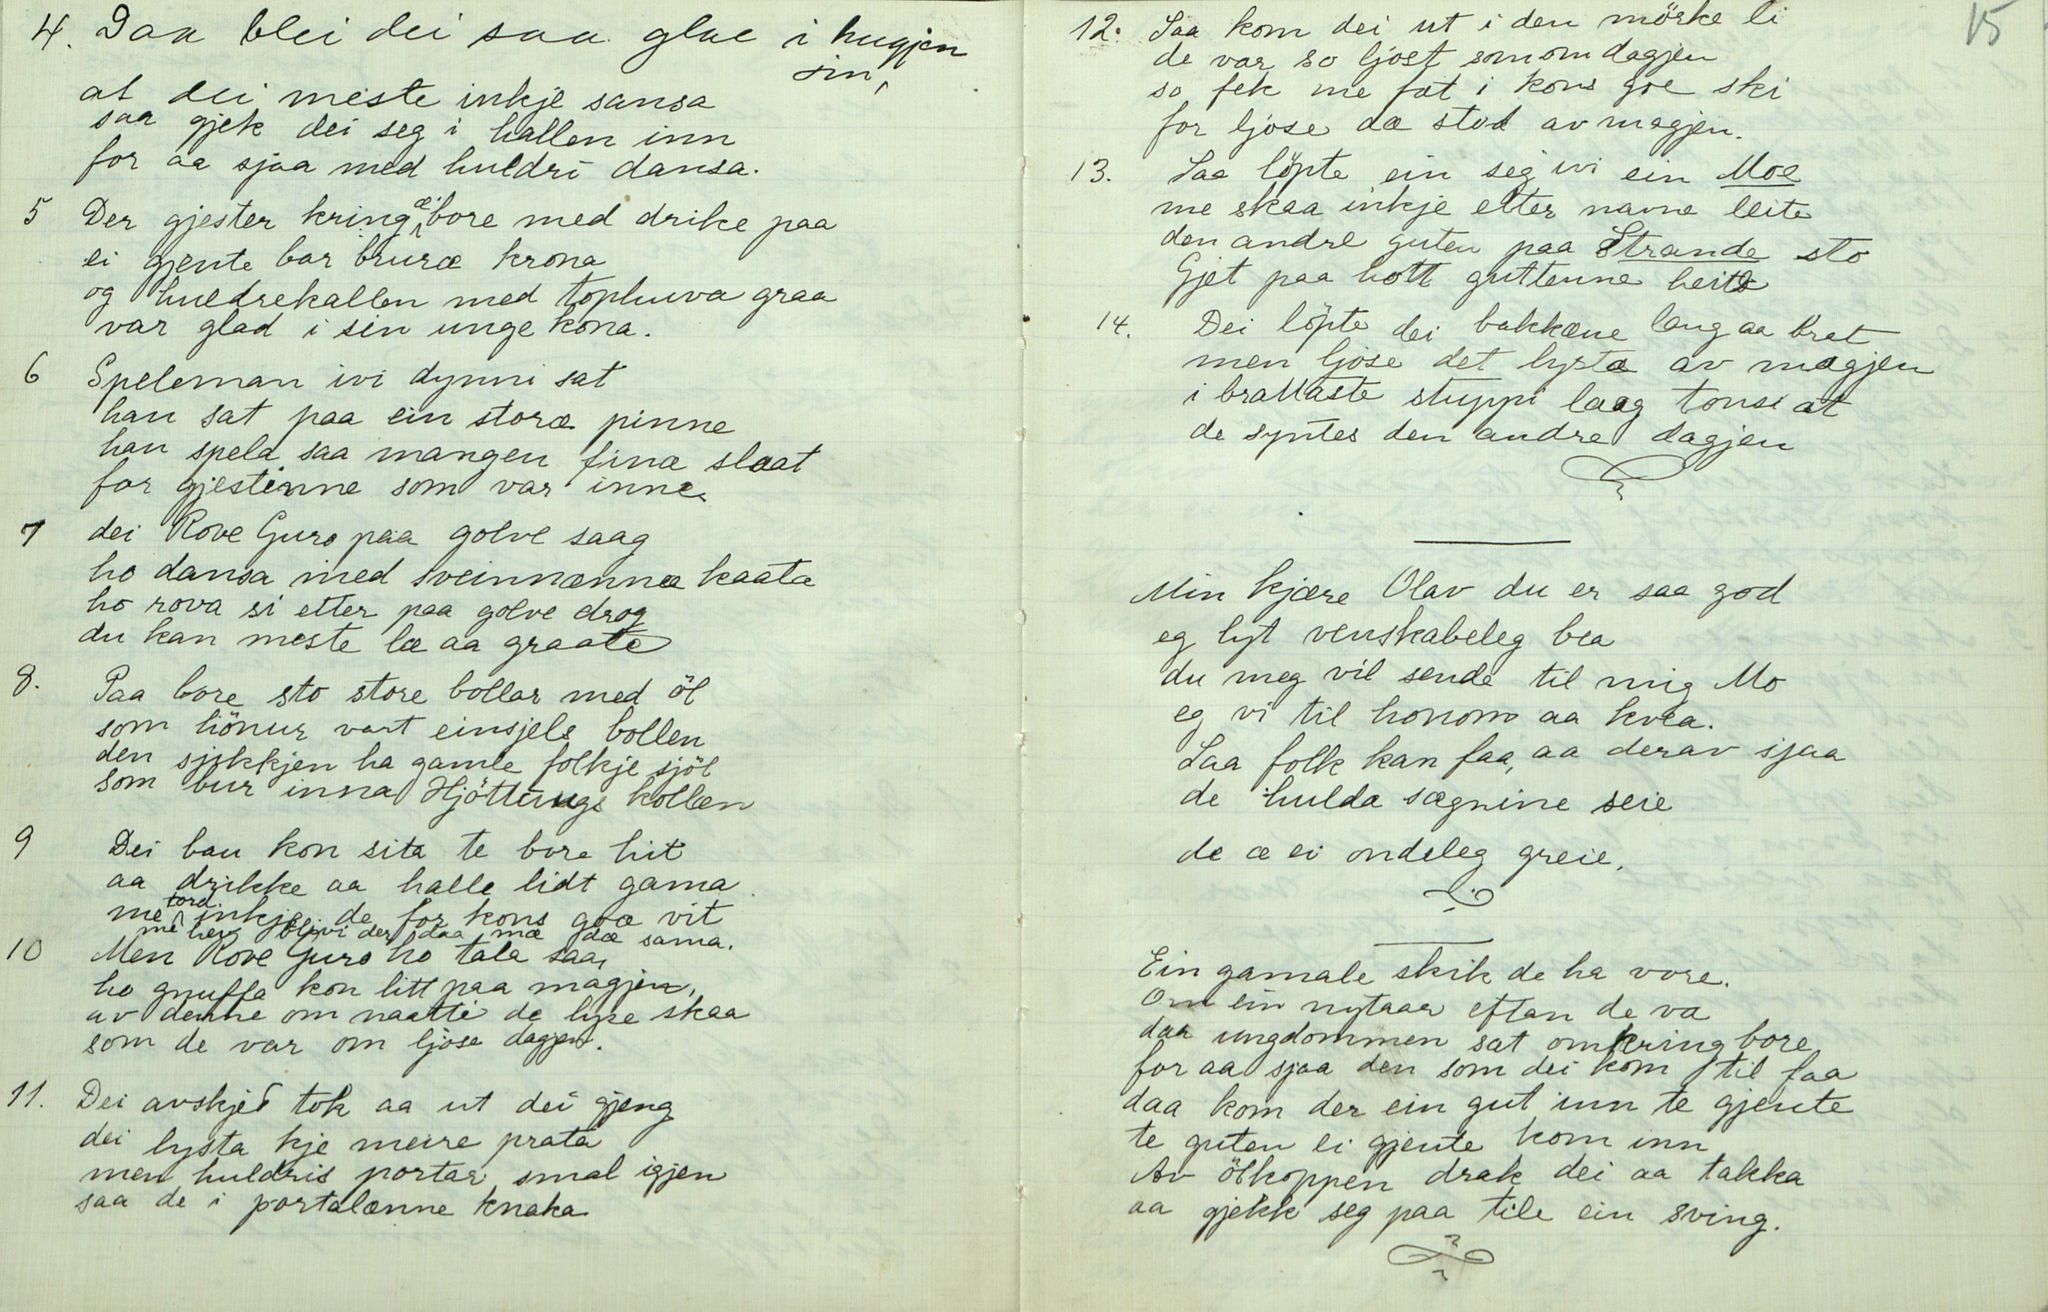 4. Daa blei dei saa glae i hugjen
sin,
at dei meste inkje sansa
saa gjek dei seg i hallen inn
for aa sjaa med huldri dansa.
5 Der gjester kring æi bore med drike paa
ei gjente bar bruræ krona
og huldrekallen med tophuva graa
var glad i sin unge kona.
6 Speleman ivi dynni sat
han sat paa ein storæ pinne
han spela saa mangen finæ slaat
for gjestinne som var inne.
7 dei Rove Guro paa golve saag
ho dansa med sveinnænna kaata
ho rova si etter paa golve drog
du kan meste læ aa graate
8. Paa bore sto store bollar med öl
som hönur vart einsjels bollen
den sjikkjen ha gamle folkje sjöl
som bur inna Hjöttungs kollen
9 Dei bau kon sita te bore hit
aa drikke aa halle lidt gama
me tord inkje de for kons goæ vit
me hev blivi der daa mæ dæ sama.
10 Men Rove Guro ho tala saa,
ho gnuffa kon litt paa magjen,
av denne om naatti de lyse skaa
som de var om ljose dagjen.
11. Dei avskjed tok aa ut dei gjeng
dei lysta kje meire prata
men huldris portar smal igjen
saa de i portalænne knaka
15
12. Saa kom dei ut i den mörke li
de var so ljost somom dagjen
so fek me fat i kons goe ski
for ljose dæ stod av magjen.
13. Saa löpte ein seg ivi ein Moe
me skaa inkje etter navne leite
den andre guten paa Strande sto
Gjet paa hott guttenne heite
14. Dei löpte dei bakkæne lang aa bret
men ljose det lysta av magjen
i brattaste stuppi laag tonsi at
de syntes den andre dagjen
Min kjære Olav du er saa god
eg lyt venskabeleg bea
du meg vil sende til mig Mo
eg vi til honom aa kvea.
Saa folk kan faa, aa derav sjaa
de hulda sægnine seie
de æ ei ondeleg greie.
Ein gamale skik de ha vore.
Om ein nytaar eftan de va
daa ungdommen sat omkring bore
for aa sjaa den som dei kom til faa
daa kom der ein gut inn te gjente
te guten ei gjente kom inn
Av ölkoppen drak dei aa takka
aa gjekk seg paa tile ein sving.